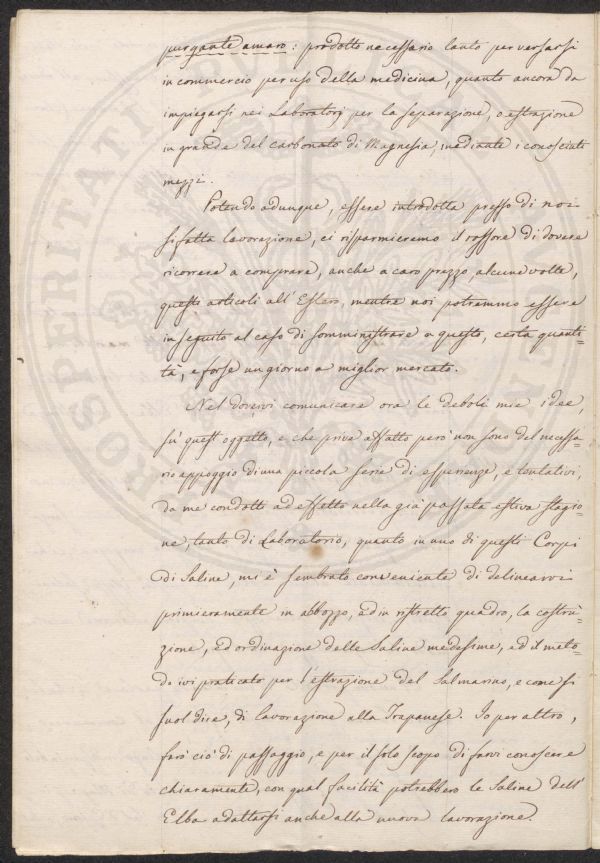 purgante amaro: prodotto necessario tanto per versarsi
in commercio per uso della medicina, quanto ancora da
impiegarsi nei Laboratorj per la separazione, o estrazione
in grande del carbonato di Magnesia, mediante i conosciuti
mezzi.
Potendo adunque, essere introdotta presso di noi
sifatta lavorazione, ci risparmieremo il rossore di dovere
ricorrere a comprare, anche a caro prezzo, alcune volte,
questi articoli all'Estero, mentre noi potrammo essere
in seguito al caso di somministrare a questo, certa quanti-
tà, e forse un giorno a miglior mercato.
Nel dovervi comunicare ora le deboli mie idee,
su quest'oggetto, e che prive affatto però non sono del necessa-
rio appoggio di una piccola serie di esperienze, e tentativi,
da me condotti ad effetto nella già passata estiva stagio-
ne, tanto di Laboratorio, quanto in uno di questi Corpi
di Saline, mi è sembrato conveniente di delinearvi
primieramente in abbozzo, ad in ristretto quadro, la costru-
zione, ed ordinazione delle Saline medesime, ed il meto-
do ivi praticato per l'estrazione del Salmarino, e come si
suol dire, di lavorazione alla Trapanese. Io per altro,
farò ciò di passaggio, e per il solo scopo di farvi conoscere
chiaramente, con qual facilità potrebbero le Saline dell'
Elba adattarsi anche alla nuova lavorazione.
PROSPERITATI